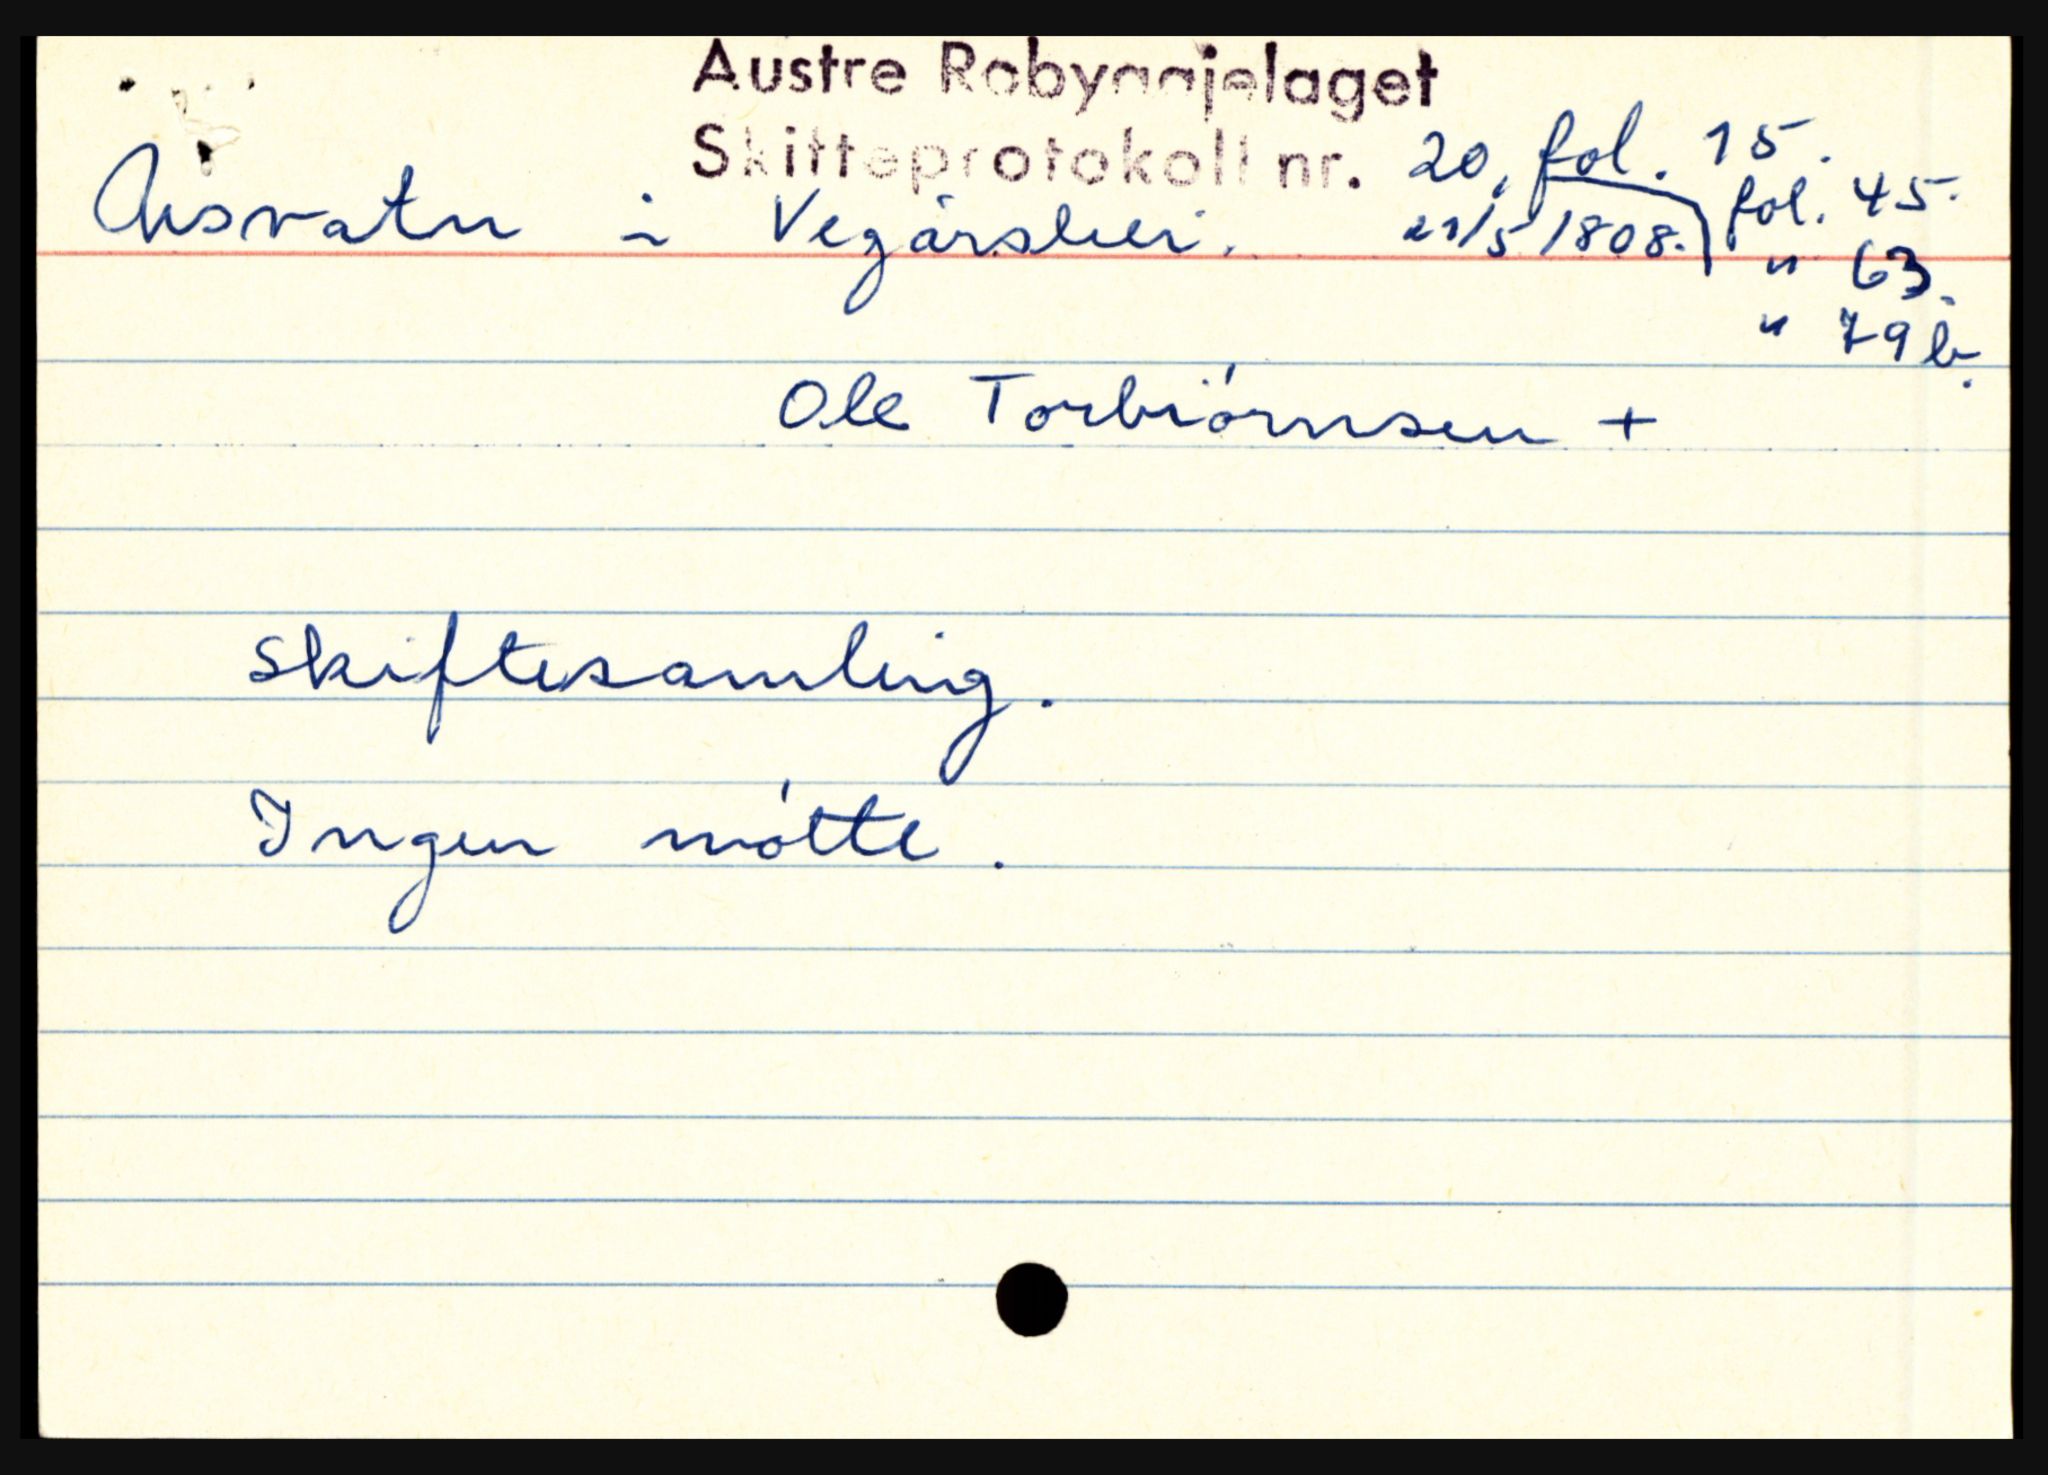 Austre Robyggjelaget
Skifteprotokoll nr. 20, fol. 15.
Ausvatn i Vegårshei. 21/5 1808. fol. 45.
" 63.
" 79 b.
Ole Torbiórnsen +
Skiftesamling.
Ingen mótte.